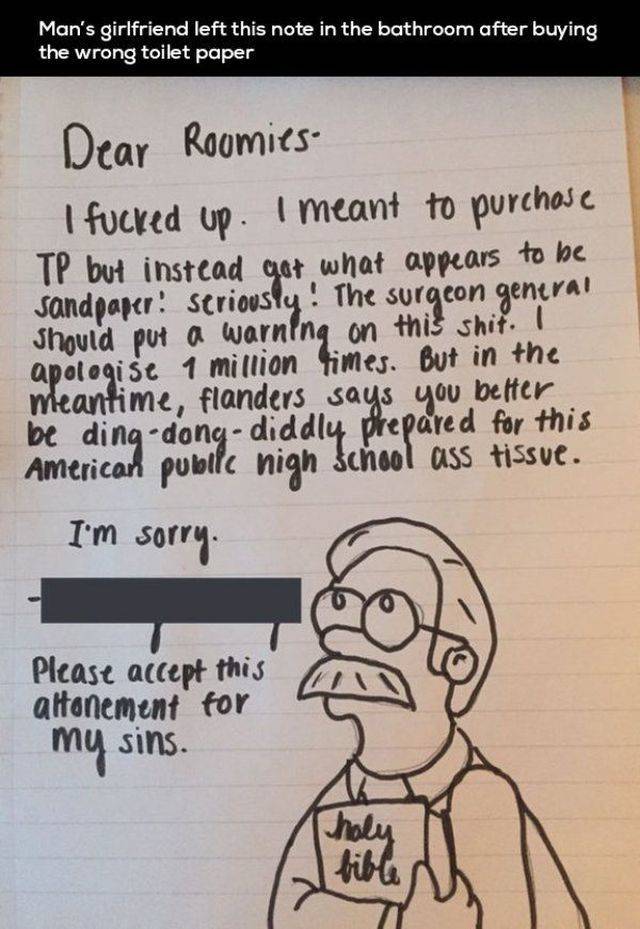 Man's girlfriend left this note in the bathroom after buying
the wrong toilet paper
Dear Roomies-
I fucked up. I meant to purchase
TP but instead got what appears to be
sandpaper! seriously! The surgeon general
should put a warning on this shit. I
apologise 1 million times. But in the
meantime, flanders says you better
be ding-dong-diddly prepared for this
American public high school ass tissue.
I'm sorry.
-
Please accept this
attonement for
my sins.
holy
bible